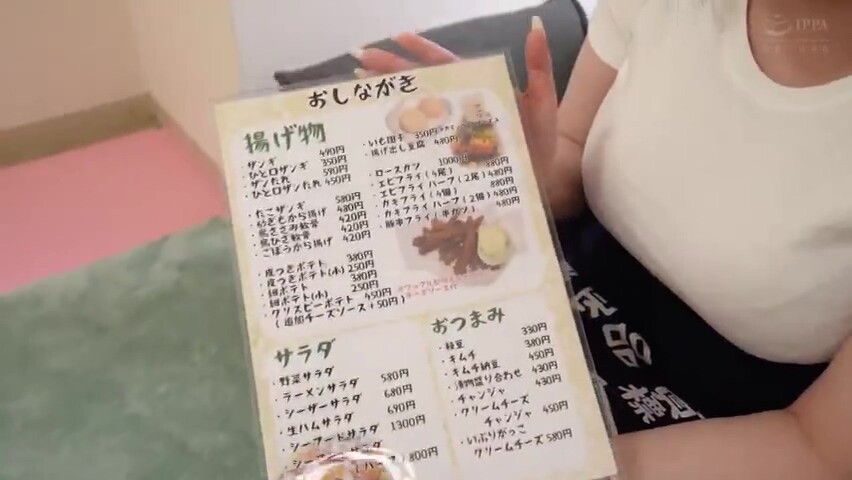 IPPA
おしながき
揚げ物
・ザンギ 490円
・ひと口ザンギ 350円
・ザンたれ 590円
・ひと口ザンたれ 450円
・たこザンギ 580円
・砂ぎもから揚げ 480円
・鳥ささみ軟骨 420円
・鳥ひざ軟骨 420円
・ごぼうから揚げ 420円
・皮つきポテト 380円
・皮つきポテト(小) 250円
・細ポテト 380円
・細ポテト(小) 250円
・クリスピーポテト 450円
(追加チーズソース+50円)
・いも団子 350円
・揚げ出し豆腐 480円
・ロースカツ 1000円
・エビフライ(4尾) 880円
・エビフライ ハーフ(2尾) 480円
・カキフライ(4個) 880円
・カキフライ ハーフ(2個) 480円
・豚串フライ(串カツ) 480円
サラダ
・野菜サラダ 580円
・ラーメンサラダ 680円
・シーザーサラダ 690円
・生ハムサラダ 1300円
・シーフードサラダ
800円
おつまみ
・枝豆 330円
・キムチ 380円
・キムチ納豆 450円
・漬物盛り合わせ 430円
・チャンジャ 430円
・クリームチーズ
チャンジャ 450円
・いぶりがっこ
クリームチーズ 580円